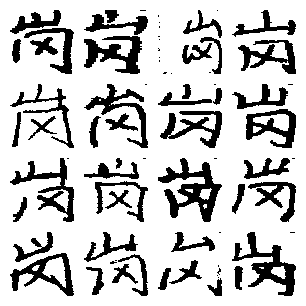 岗岗岗岗
岗岗岗岗
岗岗岗岗
岗岗岗岗